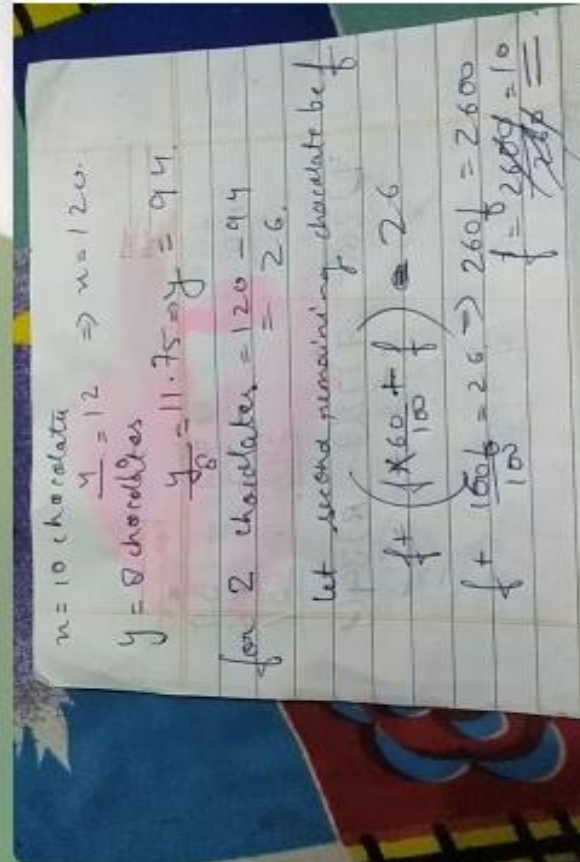 n = 10 chocolate
n/10 = 12 => n = 120.
y = 8 chocolates
y/8 = 11.75 => y = 94.
for 2 chocolates = 120 - 94
= 26.
let second remaining chocolate be f
f + (f×60/100 + f) = 26
f + 160f/100 = 26 => 260f = 2600
f = 2600/260 = 10